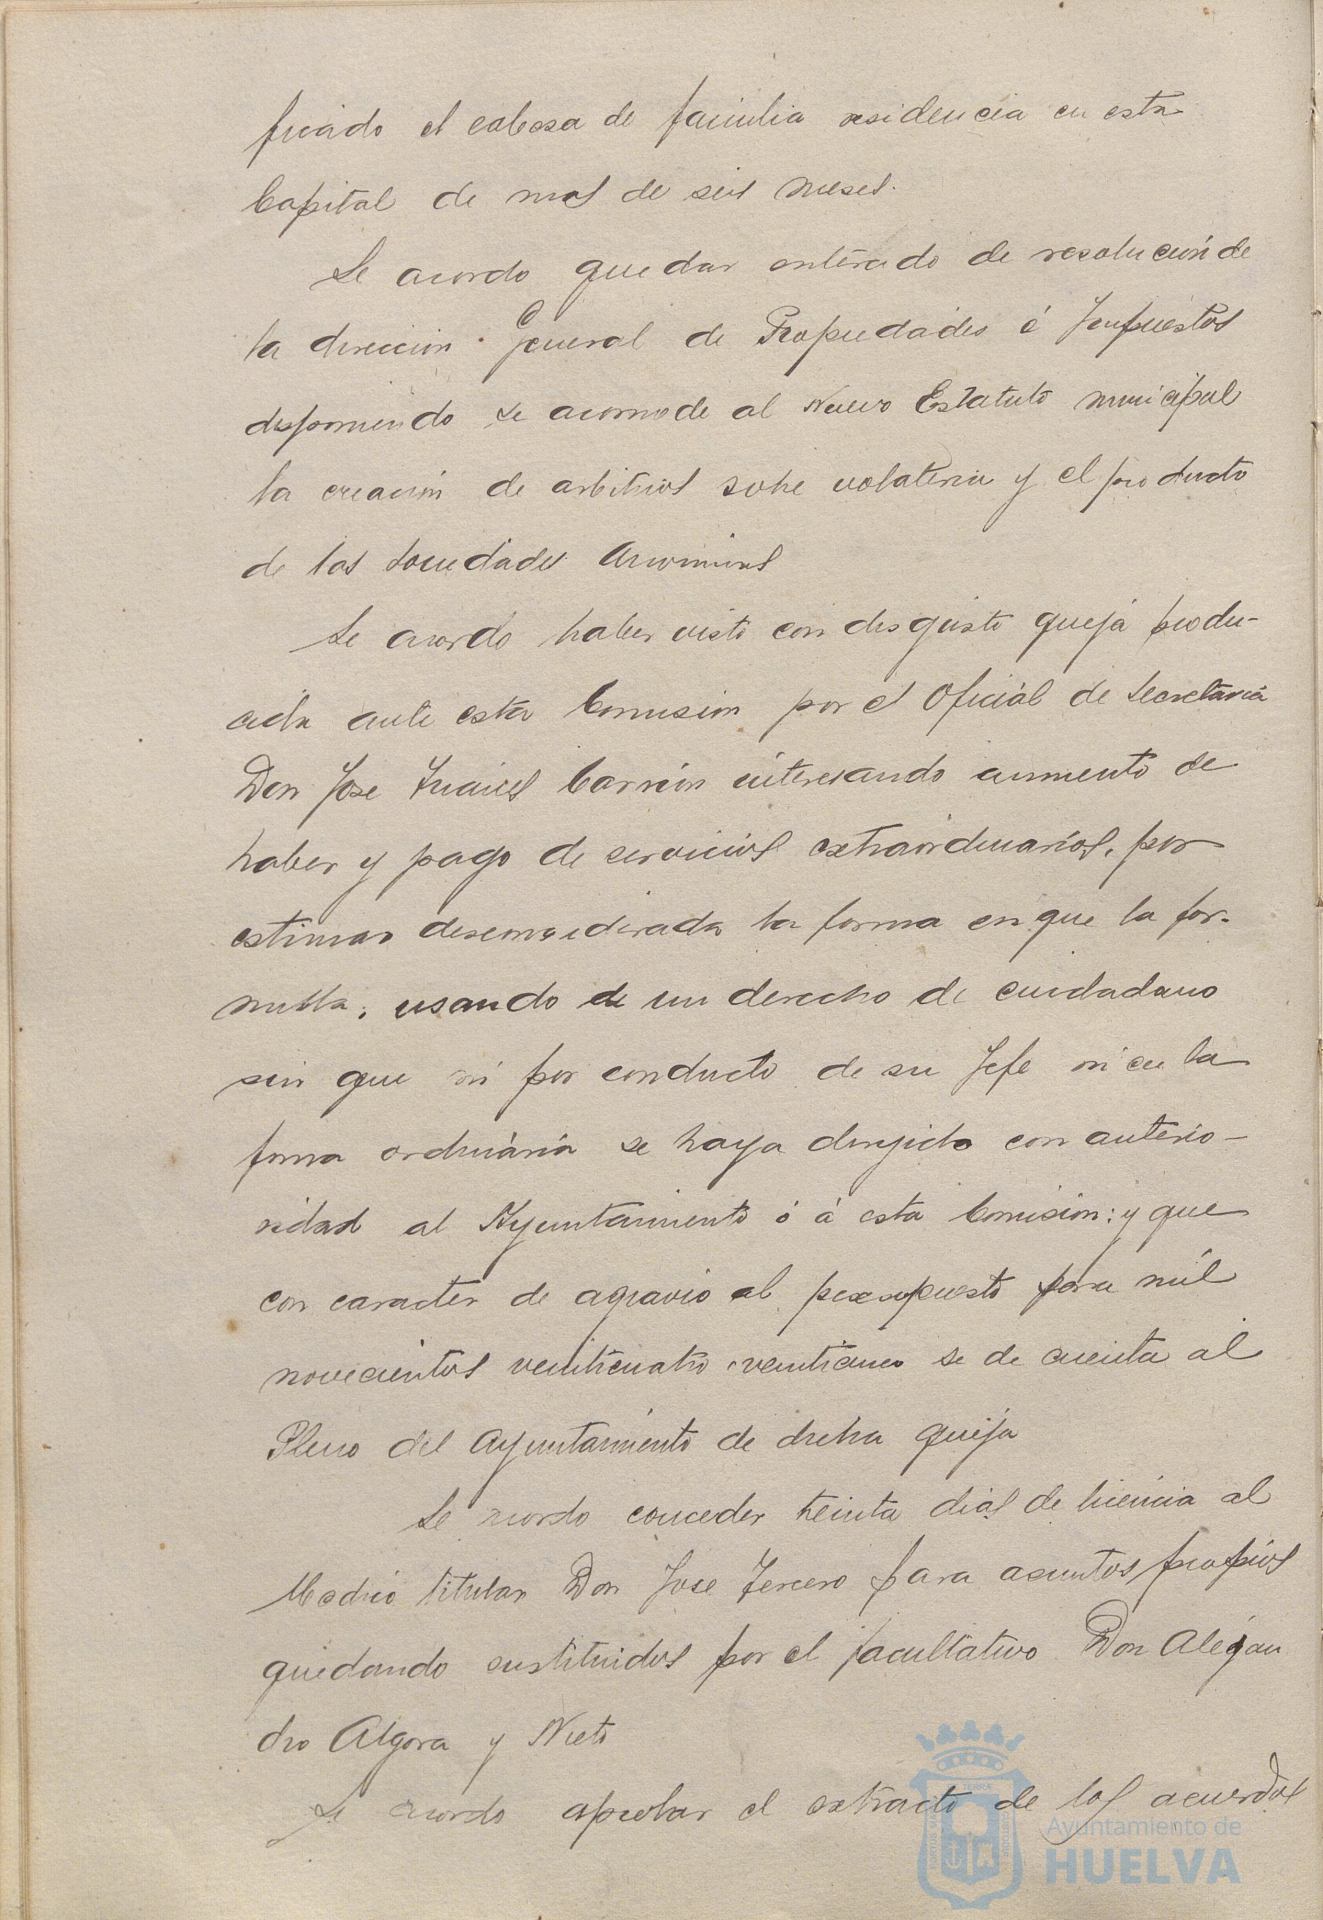 ficado el cabesa de familia residencia en esta
Capital de mas de seis meses.
Se acordo quedar enterado de resolucion de
la direccion General de Propiedades é Impuestos
disponiendo se acomode al Nuevo Estatuto municipal
la creacion de arbitrios sobre volateria y el producto
de las Sociedades Anonimas
Se acordo haber visto con disgusto queja produ-
cida ante esta Comision por el Oficial de Secretaria
Don Jose Suarez Carrión interesando aumento de
haber y pago de servicios extraordinarios, por
estimar desconsiderada la forma en que la for-
mula, usando de un derecho de cuidadano
sin que ni por conducto de su Jefe ni en la
forma ordinaria se haya dirijido con anterio-
ridad al Ayuntamiento ó á esta Comision: y que
con caracter de agravio al presupuesto para mil
novecientos veinticuatro veinticinco se de cuenta al
Pleno del Ayuntamiento de dicha queja
Se acordo conceder treinta dias de licencia al
Medico titular Don Jose Tercero para asuntos propios
quedando sustituidos por el facultativo Don Alejan
dro Algora y Nieto
Se acordo aprobar el extracto de los acuerdos
Ayuntamiento de
HUELVA